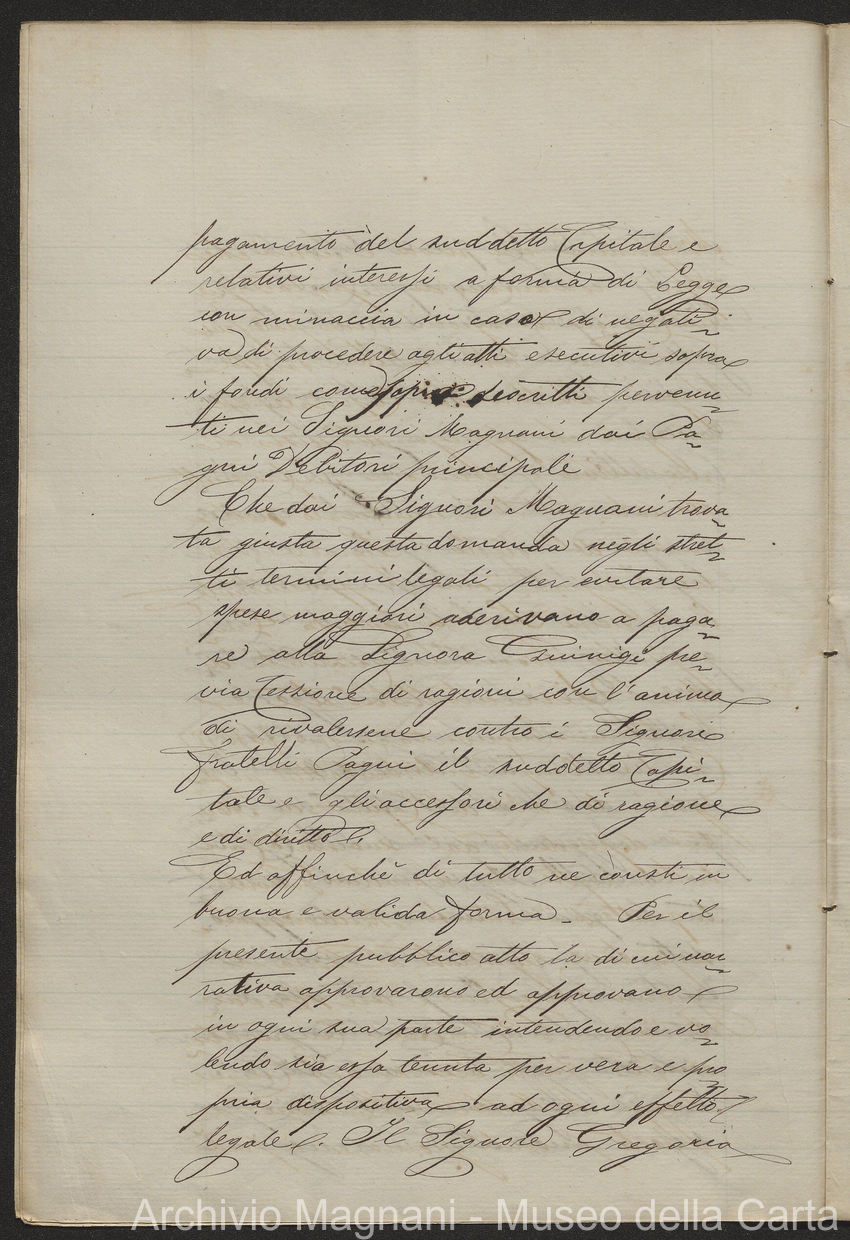 pagamento del suddetto Capitale e
relativi interessi a forma di Legge
con minaccia in caso di negati-
va di procedere agli atti esecutivi sopra
i fondi come sopra descritti pervenu-
ti nei Signori Magnani dai Pa-
gni Debitori principali
Che dai Signori Magnani trova-
ta giusta questa domanda negli stret-
ti termini legali per evitare
spese maggiori aderivano a paga-
re alla Signora Guinigi pre-
via Cessione di ragioni con l'animo
di rivalersene contro i Signori
fratelli Pagni il suddetto Capi-
tale e gli accessori che di ragione
e di diritto.
Ed affinchè di tutto ne consti in
buona e valida forma. Per il
presente pubblico atto la di cui nar-
rativa approvarono ed approvano
in ogni sua parte intendendo e vo-
lendo sia essa tenuta per vera e pro-
pria dispositiva ad ogni effetto
legale. Il Signore Gregorio
Archivio Magnani - Museo della Carta